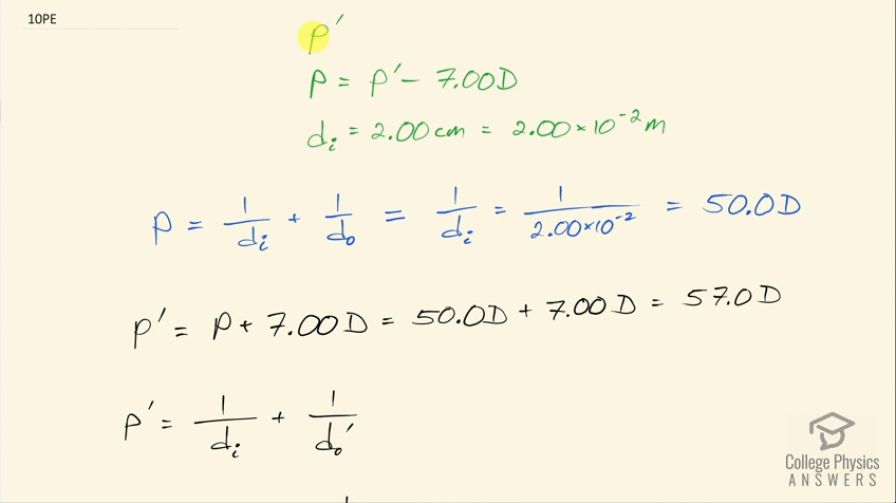 10PE
P′
P = P′ − 7.00D
dᵢ = 2.00 cm = 2.00×10⁻² m
P = 1/dᵢ + 1/dₒ = 1/dᵢ = 1/2.00×10⁻² = 50.0D
P′ = P + 7.00D = 50.0D + 7.00D = 57.0D
P′ = 1/dᵢ + 1/dₒ′
College Physics
ANSWERS